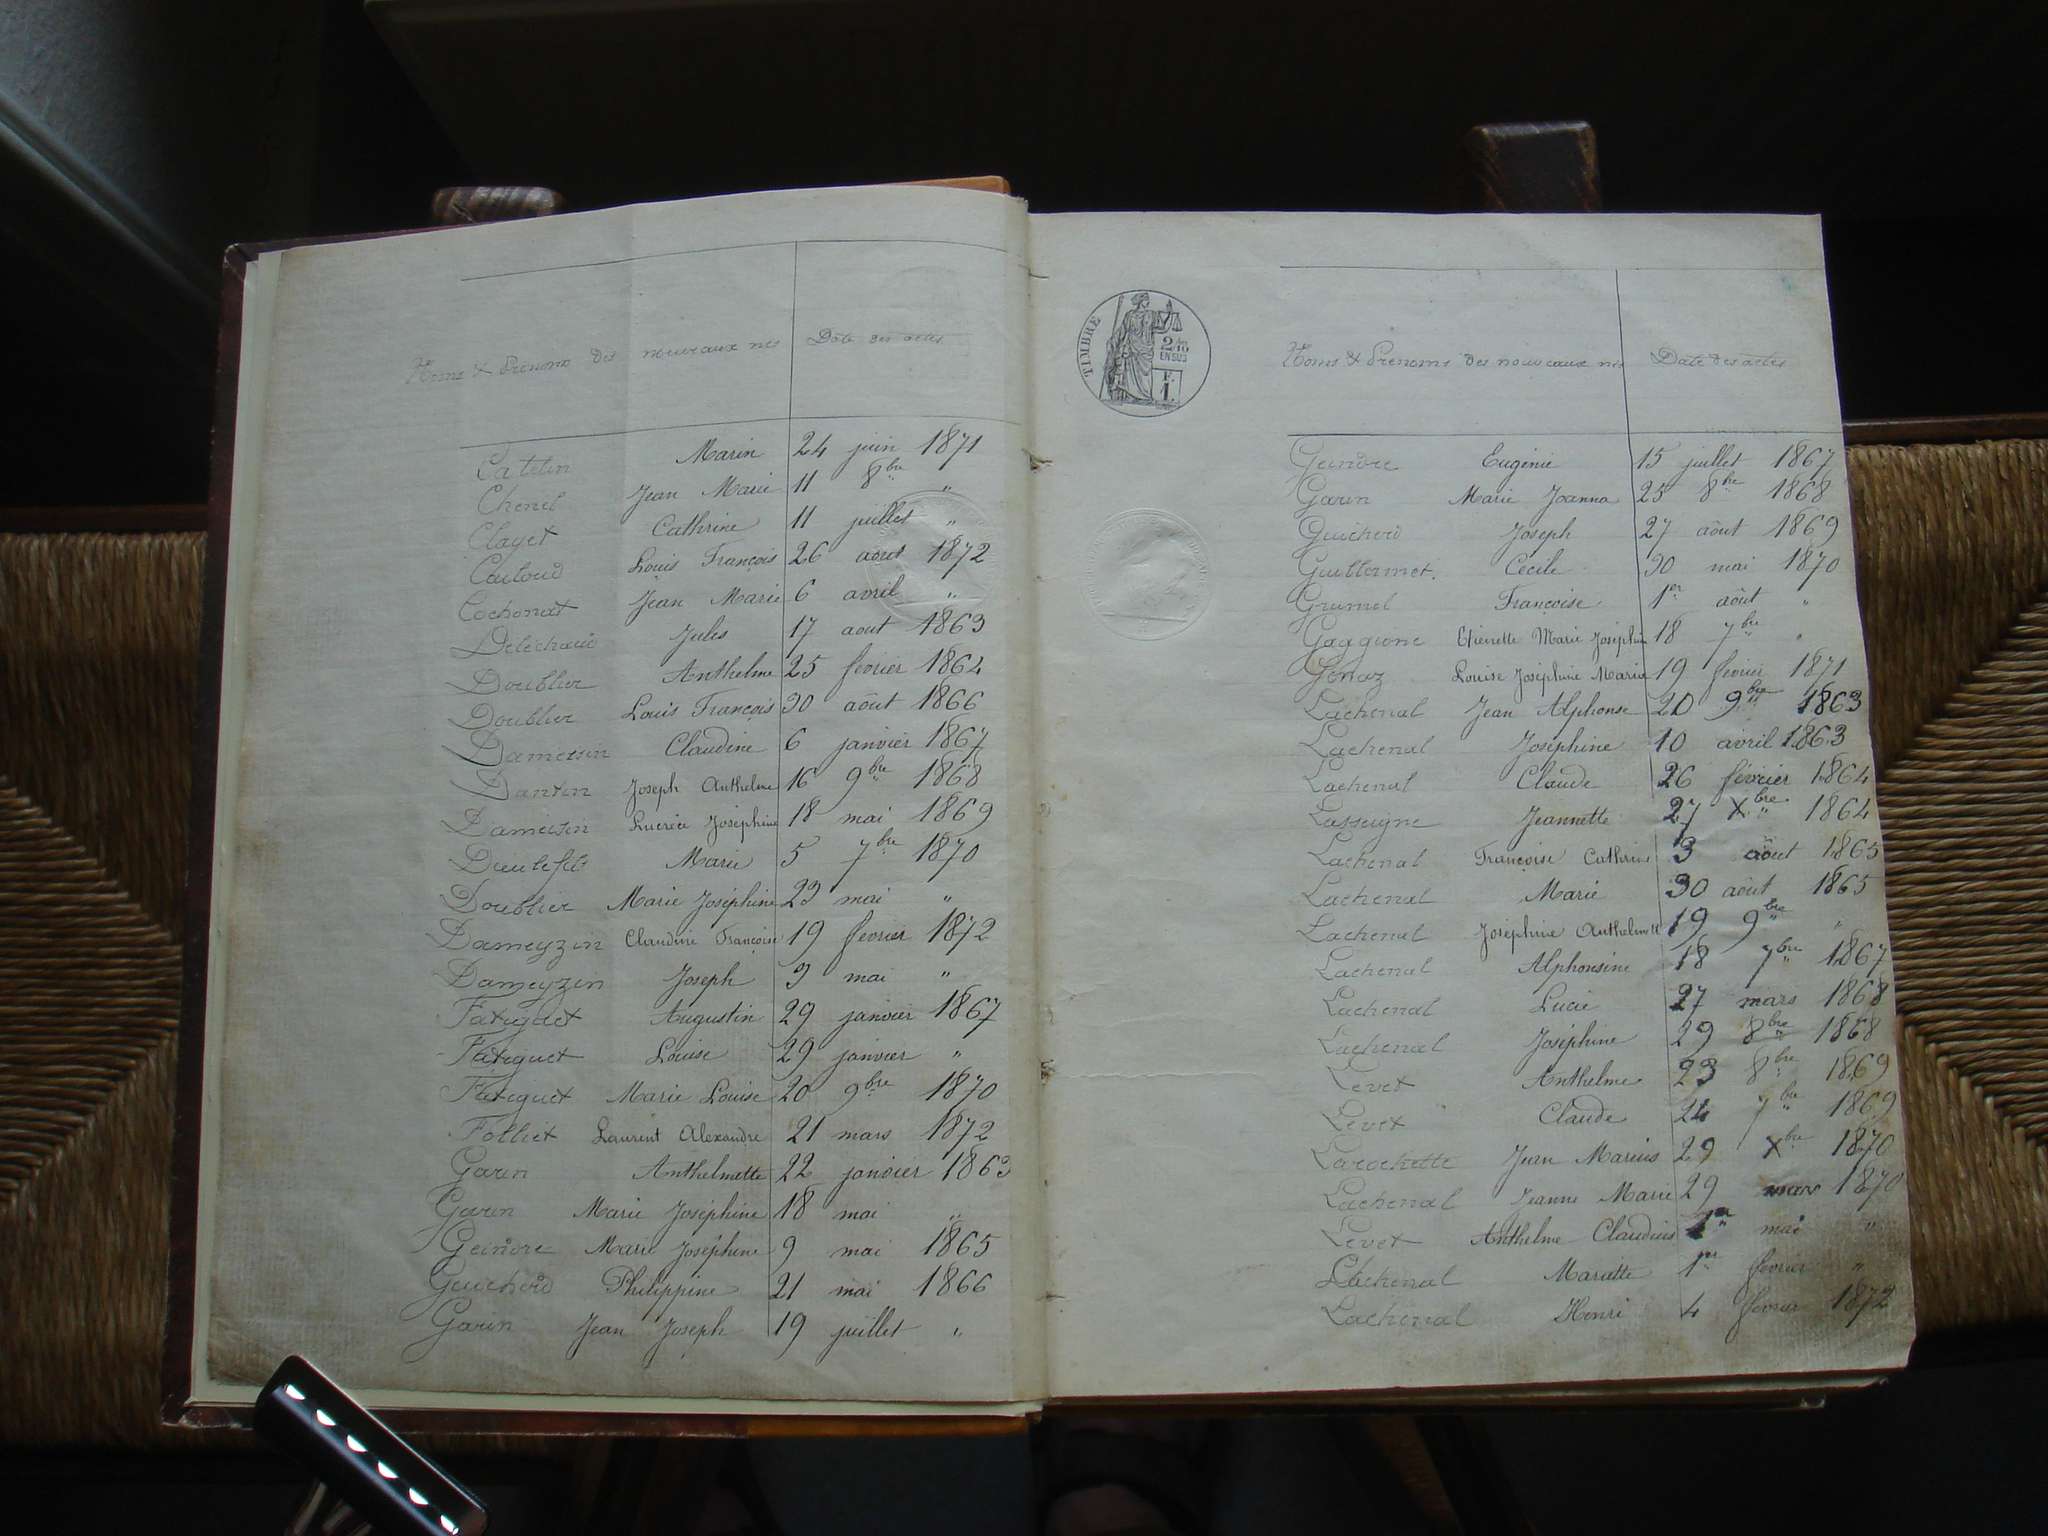 Noms & Prénoms des nouveaux nés Date des actes
Catelin Marin 24 juin 1871
Chenel Jean Marie 11 8bre "
Clayet Cathrine 11 juillet "
Couloud Louis François 26 août 1872
Cochonat Jean Marie 6 avril "
Jules 17 aout 1863
Doublier Anthelme 25 février 1864
Doublier Louis François 30 aôut 1866
Dameisin Claudine 6 janvier 1867
Dantin Joseph Anthelme 16 9bre 1868
Dameisin Lucrèce Joséphine 18 mai 1869
Dieulefils Marie 5 7bre 1870
Doublier Marie Joséphine 23 mai "
Dameyzin Claudine Françoise 19 février 1872
Dameyzin Joseph 9 mai "
Fatiguet Augustin 29 janvier 1867
Fatiguet Louise 29 janvier "
Fatiguet Marie Louise 20 9bre 1870
Folliet Laurent Alexandre 21 mars 1872
Garin Anthelmette 22 janvier 1863
Garin Marie Joséphine 18 mai "
Geindre Marie Joséphine 9 mai 1865
Guicherd Philippine 21 mai 1866
Garin Jean Joseph 19 juillet "
TIMBRE
2/10
EN SUS
F.
1.
Noms & Prénoms des nouveaux nés Date des actes
Geindre Eugénie 15 juillet 1867
Garin Marie Joanna 25 8bre 1868
Guicherd Joseph 27 aôut 1869
Guillermet Cécile 30 mai 1870
Grumel Françoise 1er aôut "
Gaggione Etienette Marie Joséphine 18 7bre "
Genaz Louise Joséphine Marie 19 février 1871
Lachenal Jean Alphonse 20 9bre 1863
Lachenal Joséphine 10 avril 1863
Lachenal Claude 26 février 1864
Lassaigne Jeannette 27 Xbre 1864
Lachenal Françoise Cathrine 3 aôut 1865
Lachenal Marie 30 aôut 1865
Lachenal Joséphine Anthelmette 19 9bre "
Lachenal Alphonsine 18 7bre 1867
Lachenal Lucie 27 mars 1868
Lachenal Joséphine 29 8bre 1868
Levet Anthelme 23 8bre 1869
Levet Claude 24 7bre 1869
Larochette Jean Marius 29 Xbre 1870
Lachenal Jeanne Marie 29 mars 1870
Levet Anthelme Claudius 1er mai "
Lachenal Mariette 1er février "
Lachenal Henri 4 février 1872